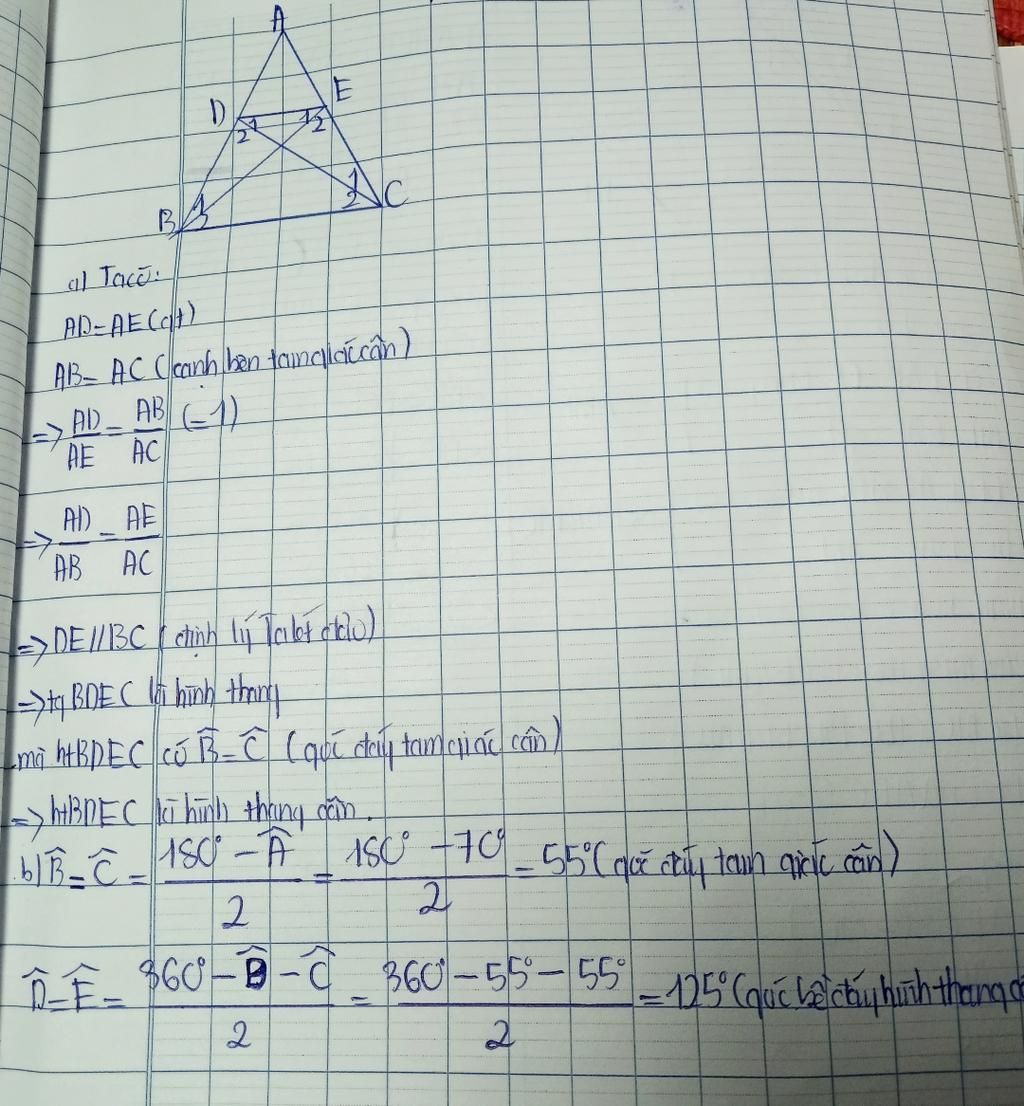 A
D
E
1
2
1
2
B
1
2
1
2
C
a) Ta có:
AD=AE(gt)
AB=AC (cạnh bên tam giác cân)
=> AD/AE = AB/AC (=1)
=> AD/AB = AE/AC
=> DE//BC (định lý Talet đảo)
=> tg BDEC là hình thang
mà htBDEC có B̂=Ĉ (góc đáy tam giác cân)
=> htBDEC là hình thang cân.
b) B̂=Ĉ = (180° - Â)/2 = (180° - 70°)/2 = 55° (góc đáy tam giác cân)
D̂=Ê = (360° - B̂ - Ĉ)/2 = (360° - 55° - 55°)/2 = 125° (góc kề đáy hình thang